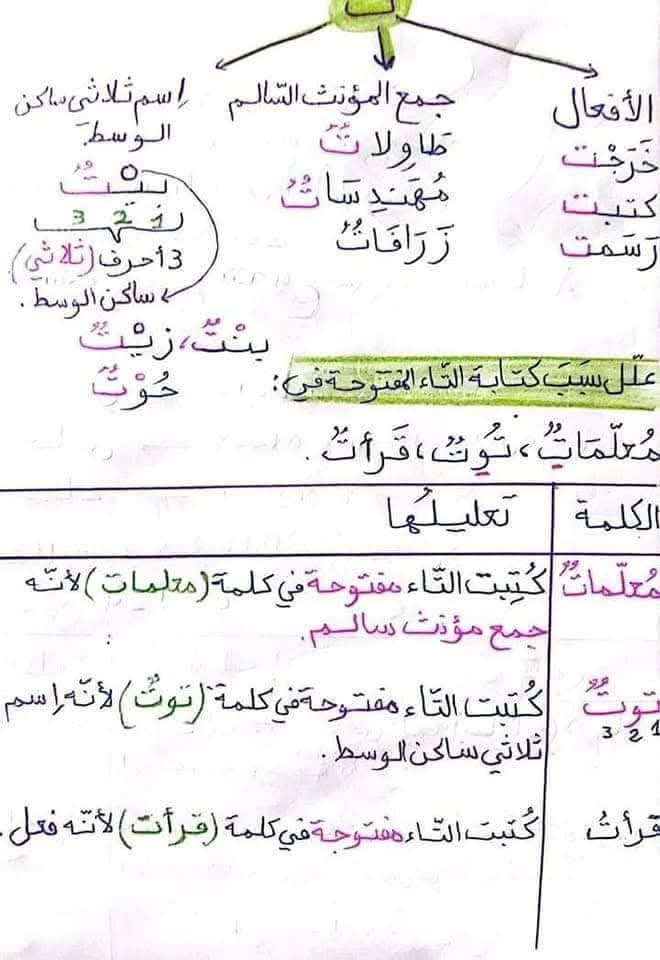 ت
الأفعال
خَرَجْت
كتبت
رَسَمت
جمع المؤنث السّالم
طَاوِلاتٌ
مُهَندِسَاتٌ
زَرَافَاتٌ
اِسم ثلاثي ساكن
الوسط
بيْتٌ
1 2 3
3 أحرف (ثلاثي)
ساكن الوسط.
بنْتٌ، زيْتٌ
حُوْتٌ
علّل سَبَبَ كتابة التّاء المفتوحة في:
مُعلّمَاتٌ، تُوتٌ، قَرأتُ.
الكلمة تعليلُها
مُعلّماتٌ كُتِبت التّاء مفتوحة في كلمة (معلمات) لأنّه
جمع مؤنث سالم.
توتٌ كُتبت التّاء مفتوحة في كلمة (توتٌ) لأنّه اِسم
1 2 3 ثلاثي ساكن الوسط.
قرأتُ كُتبت التّاء مفتوحة في كلمة (قرأت) لأنّه فعل.